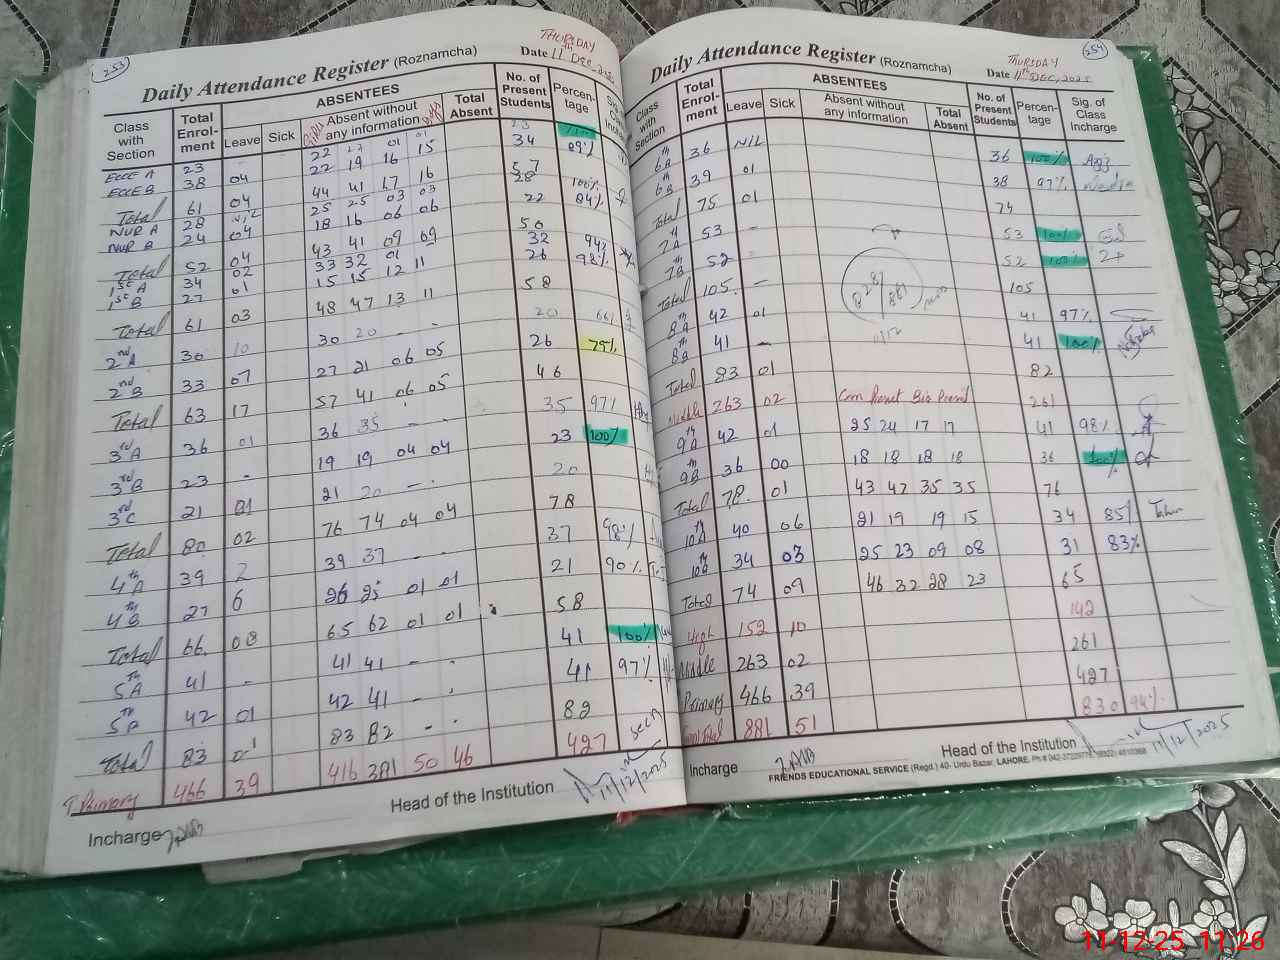 253
THURSDAY
Daily Attendance Register (Roznamcha)
Date 11th DEC, 2025
Class with Section
Total Enrol-ment
ABSENTEES
Leave
Sick
Girls
Absent without any information
Boys
Total Absent
No. of Present Students
Percen-tage
Sig. of Class Incharge
ECCE A 23 - 22 22 01 01 23
ECCE B 38 04 22 19 16 15 34 89%
Total 61 04 44 41 17 16 57
NUR A 28 Nil 25 25 03 03 28 100%
NUR B 24 04 18 16 06 06 22 84%
Total 52 04 43 41 09 09 50
1st A 34 02 33 32 01 32 94%
1st B 27 01 15 15 12 11 26 98%
Total 61 03 48 47 13 11 58
2nd A 30 10 30 20 - - 20 66%
2nd B 33 07 27 21 06 05 26 79%
Total 63 17 57 41 06 05 46
3rd A 36 01 36 35 - 35 97%
3rd B 23 - 19 19 04 04 23 100%
3rd C 21 01 21 20 - - 20
Total 80 02 76 74 04 04 78
4th A 39 2 39 37 - - 37 98%
4th B 27 6 26 25 01 01 21 90%
Total 66 08 65 62 01 01 58
5th A 41 - 41 41 - - 41 100%
5th B 42 01 42 41 - - 41 97%
Total 83 01 83 82 - - 82
T.Primary 466 39 416 381 50 46 427
Incharge
Head of the Institution
11/12/2025
254
THURSDAY
Daily Attendance Register (Roznamcha)
Date 11th DEC, 2025
Class with Section
Total Enrol-ment
ABSENTEES
Leave
Sick
Absent without any information
Total Absent
No. of Present Students
Percen-tage
Sig. of Class Incharge
6th A 36 NIL 36 100%
6th B 39 01 38 97%
Total 75 01 74
7th A 53 - 53 100%
7th B 52 - 52 100%
Total 105 - 105
8th A 42 01 41 97%
8th B 41 - 41 100%
Total 83 01 82
Middle 263 02 Com Present Bio Present 261
9th A 42 01 25 24 17 17 41 98%
9th B 36 00 18 18 18 18 36 100%
Total 78 01 43 42 35 35 76
10th A 40 06 21 19 19 15 34 85%
10th B 34 03 25 23 09 08 31 83%
Total 74 09 46 32 28 23 65
High 152 10 142
Middle 263 02 261
Primary 466 39 427
Grand Total 881 51 830 94%
Incharge
Head of the Institution
11/12/2025
FRIENDS EDUCATIONAL SERVICE (Regd.) 40- Urdu Bazar, LAHORE.
11-12-25 11:26